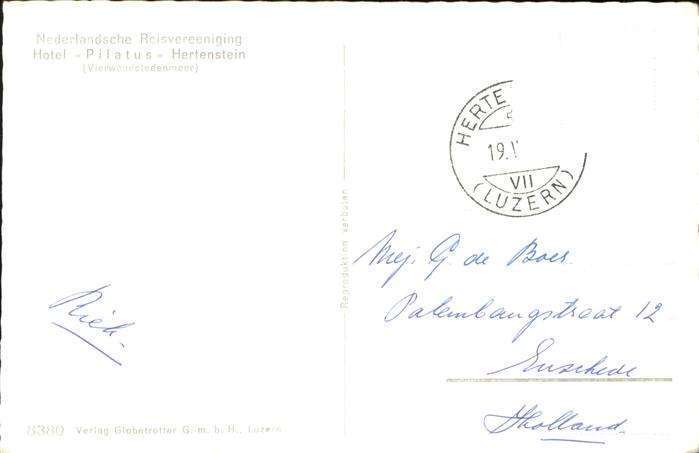 Nederlandsche Reisvereeniging
Hotel "Pilatus" Hertenstein
(Vierwoudstedenmeer)
HERTE
19.V
VII
(LUZERN)
Reproduktion verboten
Mej. G. de Boer.
Palembangstraat 12
Enschede
Holland.
Riek.
8380 Verlag Globetrotter G.m.b.H., Luzern